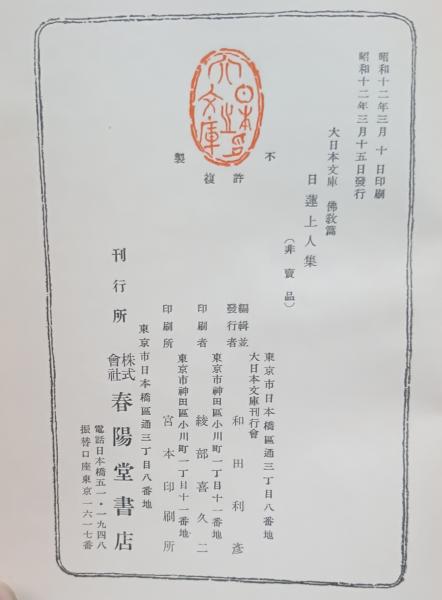 昭和十二年三月 十 日印刷
昭和十二年三月十五日發行
大日本文庫 佛敎篇
日蓮上人集
(非賣品)
不許複製
大日本文庫之印
東京市日本橋區通三丁目八番地
大日本文庫刊行會
編輯並發行者 和田利彥
東京市神田區小川町一丁目十一番地
印刷者 綾部喜久二
東京市神田區小川町一丁目十一番地
印刷所 宮本印刷所
東京市日本橋區通三丁目八番地
刊行所 株式會社 春陽堂書店
電話日本橋五一・一九四八
振替口座東京一六一七番